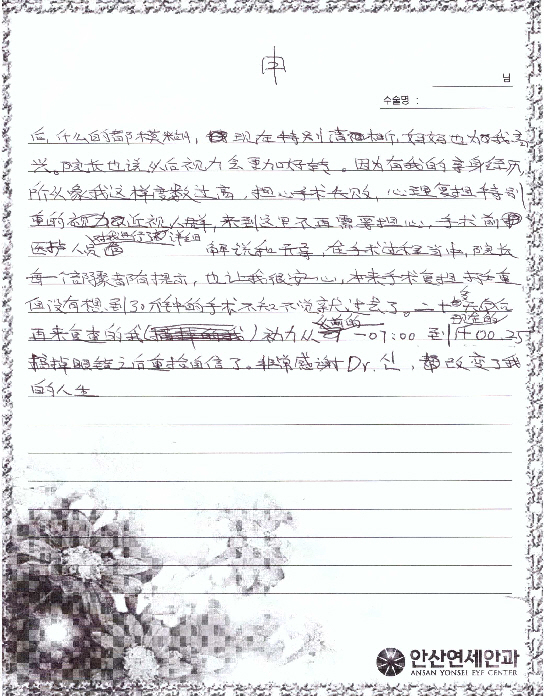 申
님
수술명 :
后,什么的都模糊,现在特别清晰,妈妈也为我高
兴。院长也说以后视力会更加好转。因为有我的亲身经历
所以象我这样度数过高,担心手术失败,心理负担特别
重的近视人群,来到这里不再需要担心,手术前
医护人员对我进行了详细 解说和开导,在手术进程当中,院长
每一个步骤都有提示,也让我很安心,本来手术负担 重
但没有想到30分钟的手术不知不觉就过去了。二十 天后
再来复查的我 视力从以前的 -07:00 到现在的 +00.25
摘掉眼镜之后重拾自信了。非常感谢Dr.신, 改变了我
的人生
안산연세안과
ANSAN YONSEI EYE CENTER